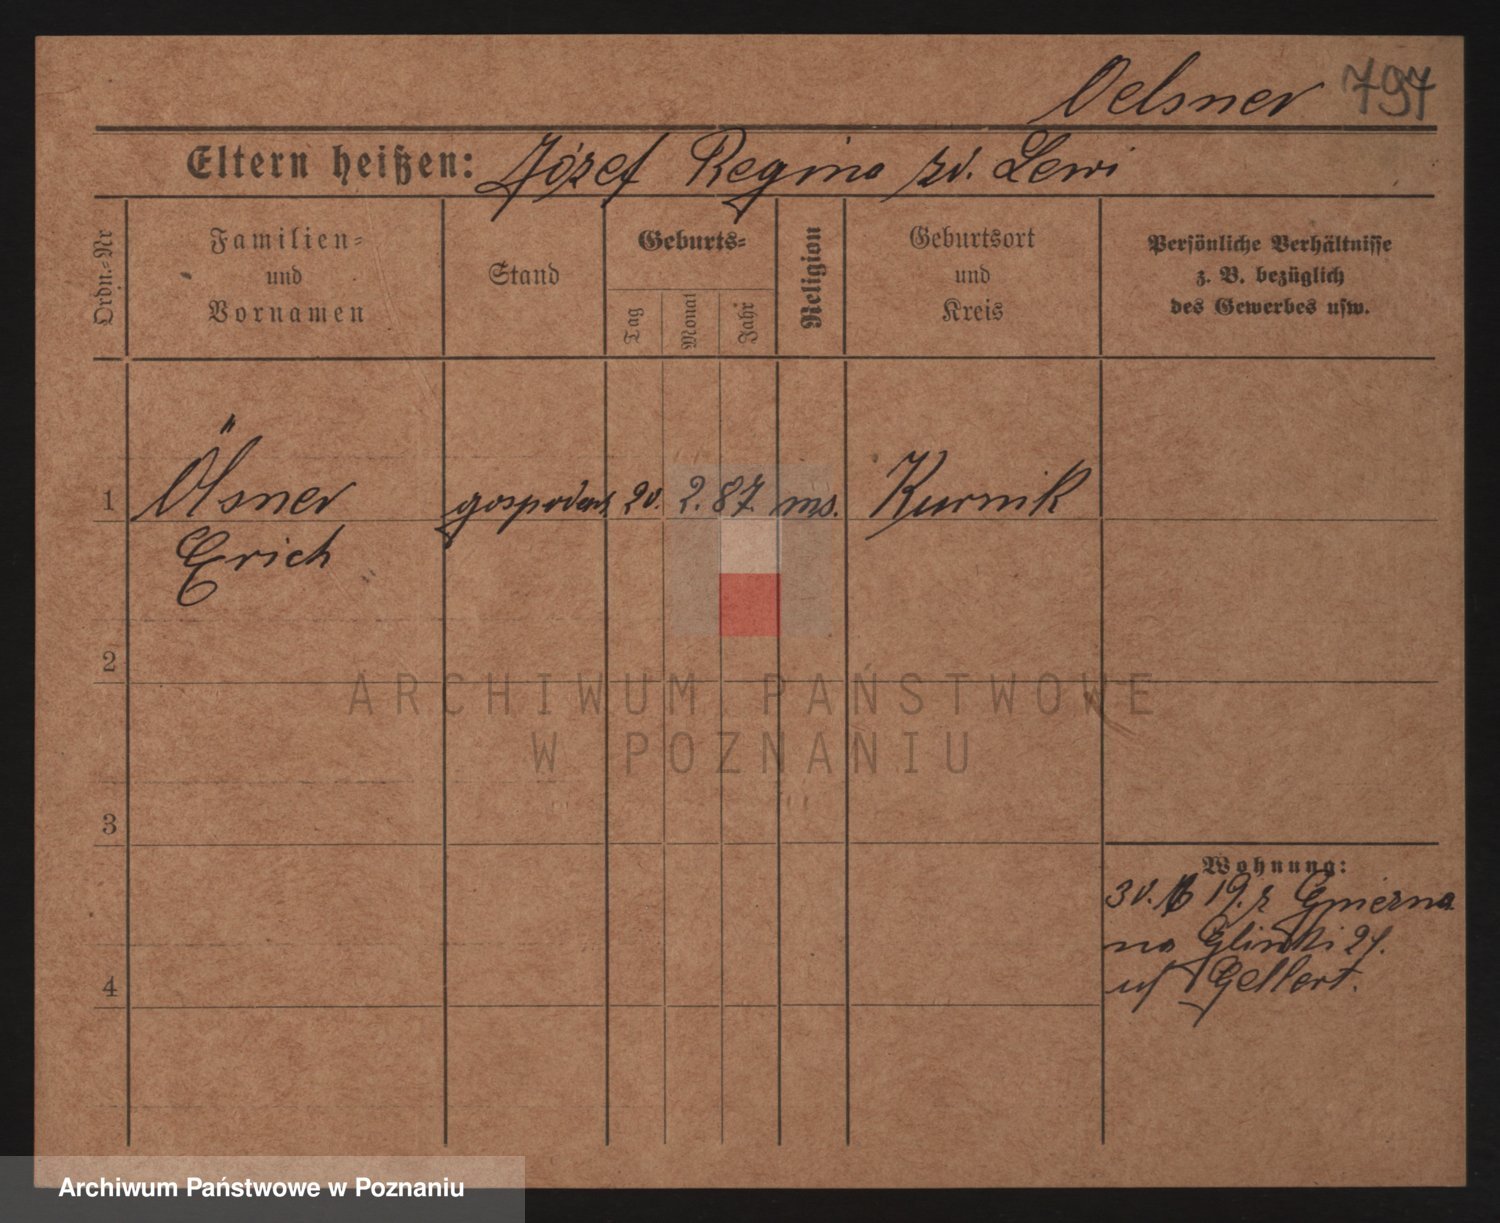 Oelsner 797
Eltern heißen: Józef Regina zd. Lewi
Ordn.-Nr
Familien-
und
Vornamen
Stand
Geburts-
Tag
Monat
Jahr
Religion
Geburtsort
und
Kreis
Persönliche Verhältnisse
z. B. bezüglich
des Gewerbes usw.
1 Ölsner 20. 2. 87. ms. Kurnik
Erich
2
ARCHIWUM PAŃSTWOWE
W POZNANIU
3
Wohnung:
19. r
na 21.
4 Gellert.
Archiwum Państwowe w Poznaniu